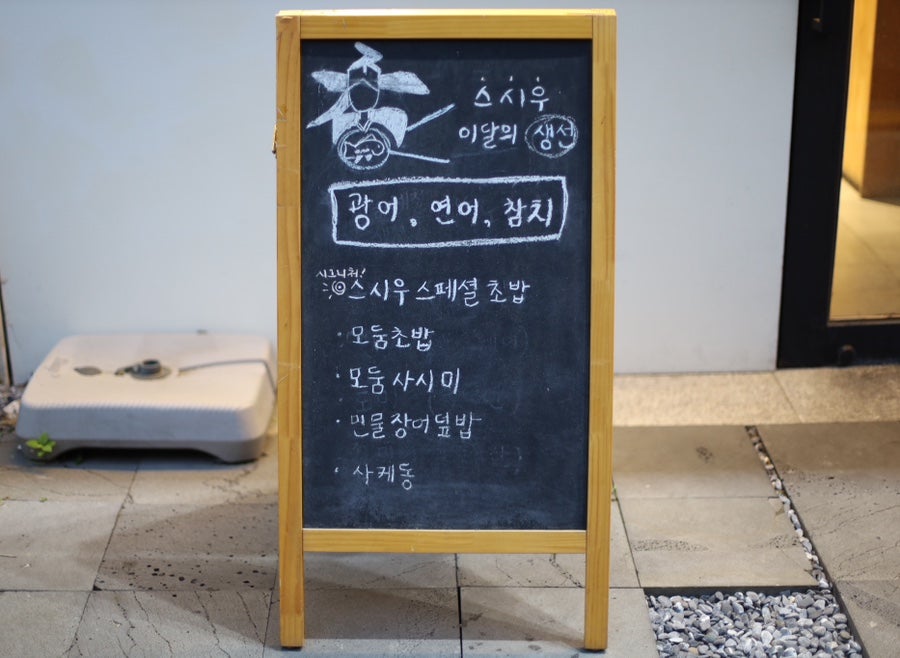 스시우
이달의 생선
광어, 연어, 참치
시그니처!
스시우 스페셜 초밥
· 모둠초밥
· 모둠 사시미
· 민물장어덮밥
· 사케동